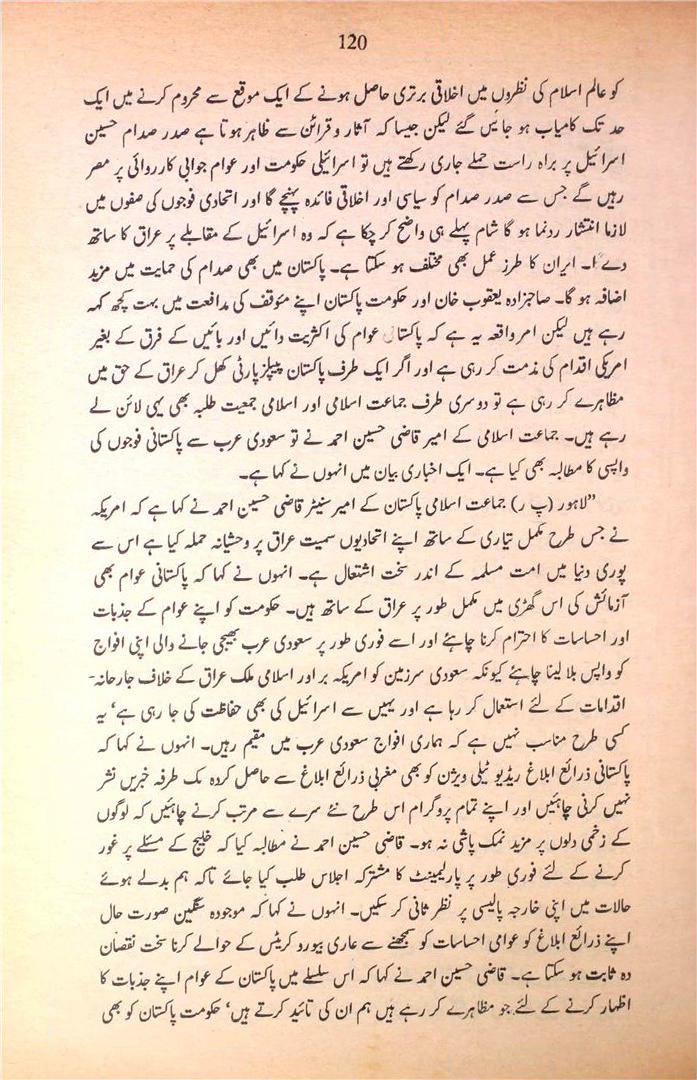 120
کو عالم اسلام کی نظروں میں اخلاقی برتری حاصل ہونے کے ایک موقع سے محروم کرنے میں ایک
حد تک کامیاب ہو جائیں گئے لیکن جیسا کہ آثار و قرائن سے ظاہر ہوتا ہے صدر صدام حسین
اسرائیل پر براہ راست حملے جاری رکھتے ہیں تو اسرائیلی حکومت اور عوام جوابی کارروائی پر مصر
رہیں گے جس سے صدر صدام کو سیاسی اور اخلاقی فائدہ پہنچے گا اور اتحادی فوجوں کی صفوں میں
لازما انتشار ردنما ہو گا شام پہلے ہی واضح کر چکا ہے کہ وہ اسرائیل کے مقابلے پر عراق کا ساتھ
دے گا۔ ایران کا طرز عمل بھی مختلف ہو سکتا ہے۔ پاکستان میں بھی صدام کی حمایت میں مزید
اضافہ ہو گا۔ صاحبزادہ یعقوب خان اور حکومت پاکستان اپنے مئوقف کی مدافعت میں بہت کچھ کہہ
رہے ہیں لیکن امر واقعہ یہ ہے کہ پاکستانی عوام کی اکثریت دائیں اور بائیں کے فرق کے بغیر
امریکی اقدام کی مذمت کر رہی ہے اور اگر ایک طرف پاکستان پیپلز پارٹی کھل کر عراق کے حق میں
مظاہرے کر رہی ہے تو دوسری طرف جماعت اسلامی اور اسلامی جمعیت طلبہ بھی یہی لائن لے
رہے ہیں۔ جماعت اسلامی کے امیر قاضی حسین احمد نے تو سعودی عرب سے پاکستانی فوجوں کی
واپسی کا مطالبہ بھی کیا ہے۔ ایک اخباری بیان میں انہوں نے کہا ہے۔
”لاہور (پ ر) جماعت اسلامی پاکستان کے امیر سنیٹر قاضی حسین احمد نے کہا ہے کہ امریکہ
نے جس طرح مکمل تیاری کے ساتھ اپنے اتحادیوں سمیت عراق پر وحشیانہ حملہ کیا ہے اس سے
پوری دنیا میں امت مسلمہ کے اندر سخت اشتعال ہے۔ انہوں نے کہا کہ پاکستانی عوام بھی
آزمائش کی اس گھڑی میں مکمل طور پر عراق کے ساتھ ہیں۔ حکومت کو اپنے عوام کے جذبات
اور احساسات کا احترام کرنا چاہئے اور اسے فوری طور پر سعودی عرب بھیجی جانے والی اپنی افواج
کو واپس بلا لینا چاہئے کیونکہ سعودی سرزمین کو امریکہ بر اور اسلامی ملک عراق کے خلاف جارحانہ-
اقدامات کے لئے استعمال کر رہا ہے اور یہیں سے اسرائیل کی بھی حفاظت کی جا رہی ہے‘ یہ
کسی طرح مناسب نہیں ہے کہ ہماری افواج سعودی عرب میں مقیم رہیں۔ انہوں نے کہا کہ
پاکستانی ذرائع ابلاغ ریڈیو ٹیلی ویژن کو بھی مغربی ذرائع ابلاغ سے حاصل کردہ یک طرفہ خبریں نشر
نہیں کرنی چاہئیں اور اپنے تمام پروگرام اس طرح نئے سرے سے مرتب کرنے چاہئیں کہ لوگوں
کے زخمی دلوں پر مزید نمک پاشی نہ ہو۔ قاضی حسین احمد نے مطالبہ کیا کہ خلیج کے مسئلے پر غور
کرنے کے لئے فوری طور پر پارلیمینٹ کا مشترکہ اجلاس طلب کیا جائے تاکہ ہم بدلے ہوئے
حالات میں اپنی خارجہ پالیسی پر نظر ثانی کر سکیں۔ انہوں نے کہا کہ موجودہ سنگین صورت حال
اپنے ذرائع ابلاغ کو عوامی احساسات کو سمجھنے سے عاری بیورو کریٹس کے حوالے کرنا سخت نقصان
دہ ثابت ہو سکتا ہے۔ قاضی حسین احمد نے کہا کہ اس سلسلے میں پاکستان کے عوام اپنے جذبات کا
اظہار کرنے کے لئے جو مظاہرے کر رہے ہیں ہم ان کی تائید کرتے ہیں‘ حکومت پاکستان کو بھی